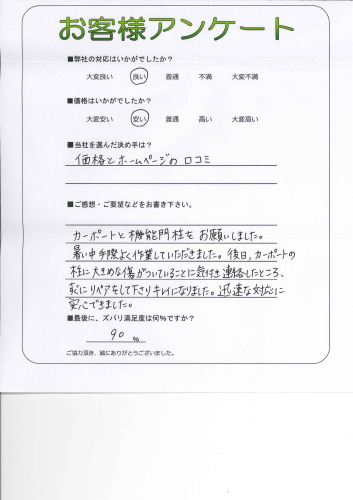 お客様アンケート
■弊社の対応はいかがでしたか?
大変良い 良い 普通 不満 大変不満
■価格はいかがでしたか?
大変安い 安い 普通 高い 大変高い
■当社を選んだ決め手は?
価格とホームページの口コミ
■ご感想・ご要望などをお書き下さい。
カーポートと機能門柱をお願いしました。
暑い中手際よく作業していただきました。後日、カーポートの
柱に大きめな傷がついていることに気付き連絡したところ、
すぐにリペアをして下さりキレイになりました。迅速な対応に
安心できました。
■最後に、ズバリ満足度は何%ですか?
90 %
ご協力頂き、誠にありがとうございました。